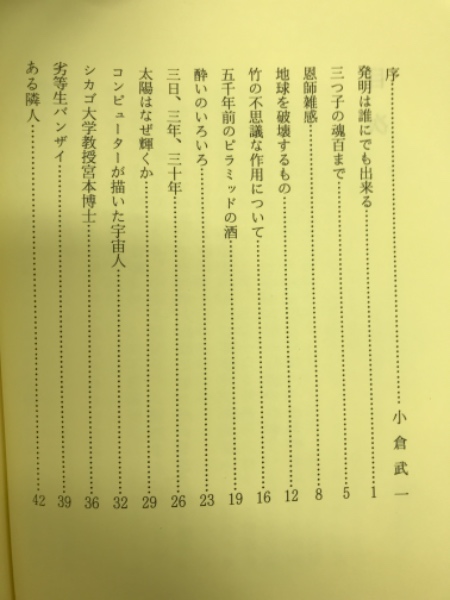 序……………………………小倉武一
発明は誰にでも出来る……………………………1
三つ子の魂百まで……………………………5
恩師雑感……………………………8
地球を破壊するもの……………………………12
竹の不思議な作用について……………………………16
五千年前のピラミッドの酒……………………………19
酔いのいろいろ……………………………23
三日、三年、三十年……………………………26
太陽はなぜ輝くか……………………………29
コンピューターが描いた宇宙人……………………………32
シカゴ大学教授宮本博士……………………………36
劣等生バンザイ……………………………39
ある隣人……………………………42